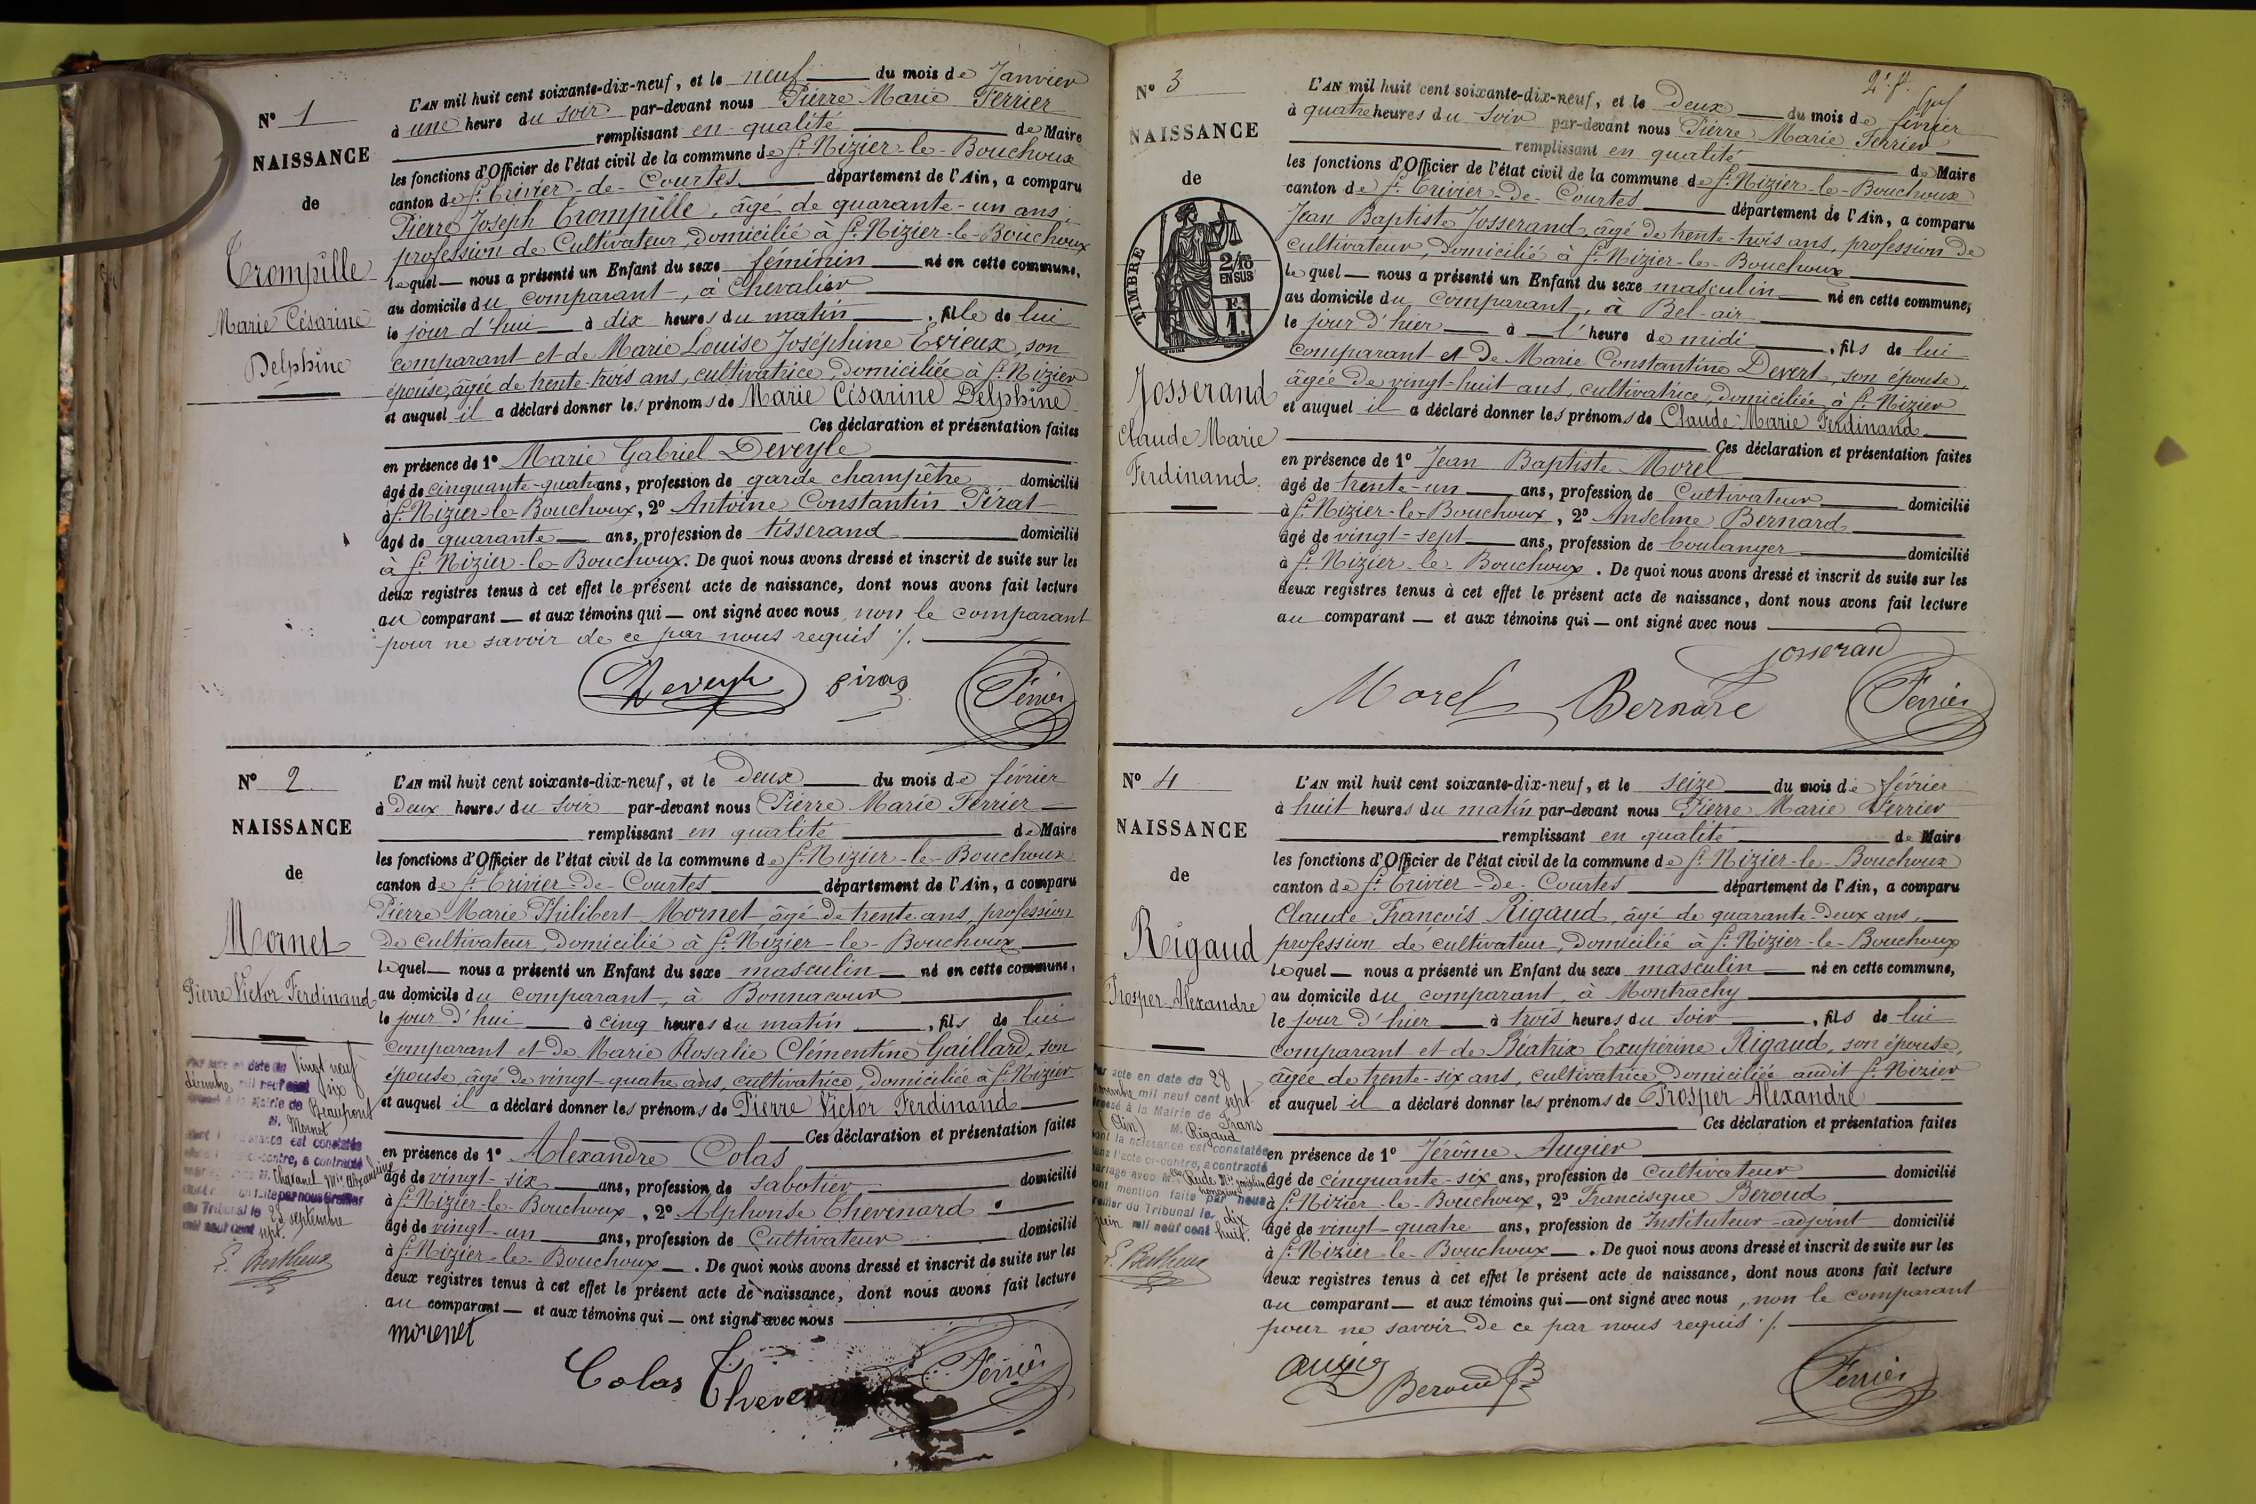 N° 1
NAISSANCE
de
Trompille
Marie Césarine
Delphine
L'AN mil huit cent soixante-dix-neuf, et le neuf du mois de Janvier
à une heure du soir par-devant nous Pierre Marie Ferrier
remplissant en qualité de Maire
les fonctions d'Officier de l'état civil de la commune de St Nizier-le-Bouchoux
canton de St Trivier-de-Courtes département de l'Ain, a comparu
Pierre Joseph Trompille, âgé de quarante-un ans,
profession de Cultivateur, domicilié à St Nizier-le-Bouchoux
lequel nous a présenté un Enfant du sexe féminin né en cette commune,
au domicile du comparant, à Chevalier
le jour d'hui à dix heures du matin, fille de lui
comparant et de Marie Louise Joséphine Evieux, son
épouse, âgée de trente-trois ans, cultivatrice, domiciliée à St Nizier
et auquel il a déclaré donner les prénoms de Marie Césarine Delphine
Ces déclaration et présentation faites
en présence de 1° Marie Gabriel Deveyle
âgé de cinquante-quatre ans, profession de garde champêtre domicilié
à St Nizier-le-Bouchoux, 2° Antoine Constantin Pirat
âgé de quarante ans, profession de tisserand domicilié
à St Nizier-le-Bouchoux. De quoi nous avons dressé et inscrit de suite sur les
deux registres tenus à cet effet le présent acte de naissance, dont nous avons fait lecture
au comparant et aux témoins qui ont signé avec nous, non le comparant
pour ne savoir de ce par nous requis ./.
Deveyle Piras Ferrier
N° 2
NAISSANCE
de
Mornet
Pierre Victor Ferdinand
Par acte en date du vingt neuf
décembre mil neuf cent six
dressé à la Mairie de Beaupont
M. Mornet
dont la naissance est constatée
dans l'acte ci-contre, a contracté
mariage avec M. Chatanel Mie Alexandrine
dont mention faite par nous Greffier
du Tribunal le 28 septembre
mil neuf cent sept.
L'AN mil huit cent soixante-dix-neuf, et le deux du mois de février
à deux heures du soir par-devant nous Pierre Marie Ferrier
remplissant en qualité de Maire
les fonctions d'Officier de l'état civil de la commune de St Nizier-le-Bouchoux
canton de St Trivier-de-Courtes département de l'Ain, a comparu
Pierre Marie Philibert Mornet âgé de trente ans, profession
de cultivateur, domicilié à St Nizier-le-Bouchoux
lequel nous a présenté un Enfant du sexe masculin né en cette commune,
au domicile du comparant, à Bonnacour
le jour d'hui à cinq heures du matin, fils de lui
comparant et de Marie Rosalie Clémentine Gaillard, son
épouse, âgé de vingt-quatre ans, cultivatrice, domiciliée à St Nizier
et auquel il a déclaré donner les prénoms de Pierre Victor Ferdinand
Ces déclaration et présentation faites
en présence de 1° Alexandre Colas
âgé de vingt-six ans, profession de sabotier domicilié
à St Nizier-le-Bouchoux, 2° Alphonse Thevenard
âgé de vingt-un ans, profession de Cultivateur domicilié
à St Nizier-le-Bouchoux. De quoi nous avons dressé et inscrit de suite sur les
deux registres tenus à cet effet le présent acte de naissance, dont nous avons fait lecture
au comparant et aux témoins qui ont signé avec nous
mornet
Colas Ferrier
N° 3
NAISSANCE
de
TIMBRE
2/10
EN SUS
F
1.
Josserand
Claude Marie
Ferdinand.
2e f.
L'AN mil huit cent soixante-dix-neuf, et le deux du mois de février
à quatre heures du soir par-devant nous Pierre Marie Ferrier
remplissant en qualité de Maire
les fonctions d'Officier de l'état civil de la commune de St Nizier-le-Bouchoux
canton de St Trivier-de-Courtes département de l'Ain, a comparu
Jean Baptiste Josserand, âgé de trente-trois ans, profession de
cultivateur, domicilié à St Nizier-le-Bouchoux
lequel nous a présenté un Enfant du sexe masculin né en cette commune,
au domicile du comparant, à Bel-air
le jour d'hier à l'heure de midi, fils de lui
comparant et de Marie Constantine Devert, son épouse,
âgée de vingt-huit ans, cultivatrice, domiciliée à St Nizier
et auquel il a déclaré donner les prénoms de Claude Marie Ferdinand
Ces déclaration et présentation faites
en présence de 1° Jean Baptiste Morel
âgé de trente-un ans, profession de Cultivateur domicilié
à St Nizier-le-Bouchoux, 2° Anselme Bernard
âgé de vingt-sept ans, profession de boulanger domicilié
à St Nizier-le-Bouchoux. De quoi nous avons dressé et inscrit de suite sur les
deux registres tenus à cet effet le présent acte de naissance, dont nous avons fait lecture
au comparant et aux témoins qui ont signé avec nous
josseran
Morel Bernard Ferrier
N° 4
NAISSANCE
de
Rigaud
Prosper Alexandre
Par acte en date du 28
novembre mil neuf cent sept
dressé à la Mairie de Trans
(Ain) M. Rigaud
dont la naissance est constatée
dans l'acte ci-contre, a contracté
mariage avec Mlle Rude Mie
dont mention faite par nous
Greffier du Tribunal le dix
juin mil neuf cent huit.
L'AN mil huit cent soixante-dix-neuf, et le seize du mois de février
à huit heures du matin par-devant nous Pierre Marie Ferrier
remplissant en qualité de Maire
les fonctions d'Officier de l'état civil de la commune de St Nizier-le-Bouchoux
canton de St Trivier-de-Courtes département de l'Ain, a comparu
Claude François Rigaud, âgé de quarante-deux ans,
profession de cultivateur, domicilié à St Nizier-le-Bouchoux
lequel nous a présenté un Enfant du sexe masculin né en cette commune,
au domicile du comparant, à Montrachy
le jour d'hier à trois heures du soir, fils de lui
comparant et de Béatrix Exupérine Rigaud, son épouse,
âgée de trente-six ans, cultivatrice domiciliée audit St Nizier
et auquel il a déclaré donner les prénoms de Prosper Alexandre
Ces déclaration et présentation faites
en présence de 1° Jérôme Augier
âgé de cinquante-six ans, profession de Cultivateur domicilié
à St Nizier-le-Bouchoux, 2° Francisque Beroud
âgé de vingt-quatre ans, profession de Instituteur-adjoint domicilié
à St Nizier-le-Bouchoux. De quoi nous avons dressé et inscrit de suite sur les
deux registres tenus à cet effet le présent acte de naissance, dont nous avons fait lecture
au comparant et aux témoins qui ont signé avec nous, non le comparant
pour ne savoir de ce par nous requis ./.
Beroud Ferrier